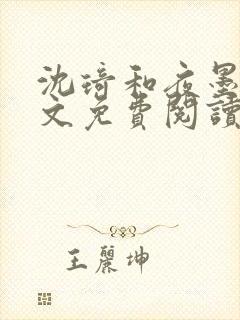 沈琦和夜墨
文免費閱讀
王麗坤